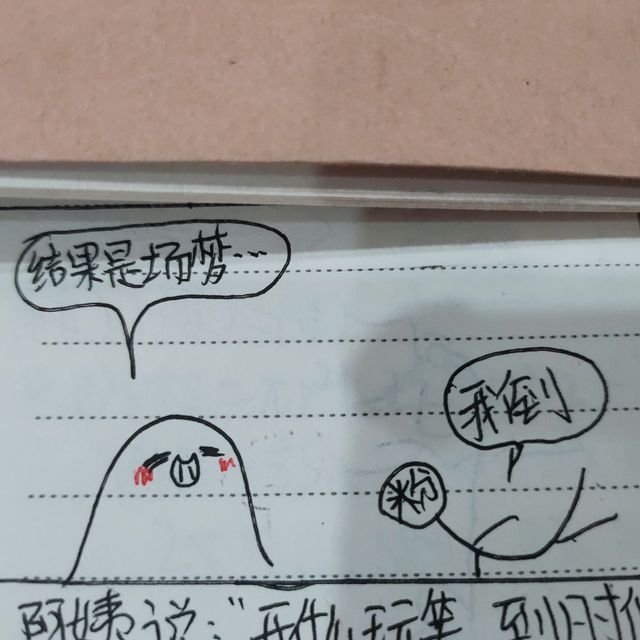 结果是场梦…
我倒
粉
阿姨说:"开什么玩笑 到时